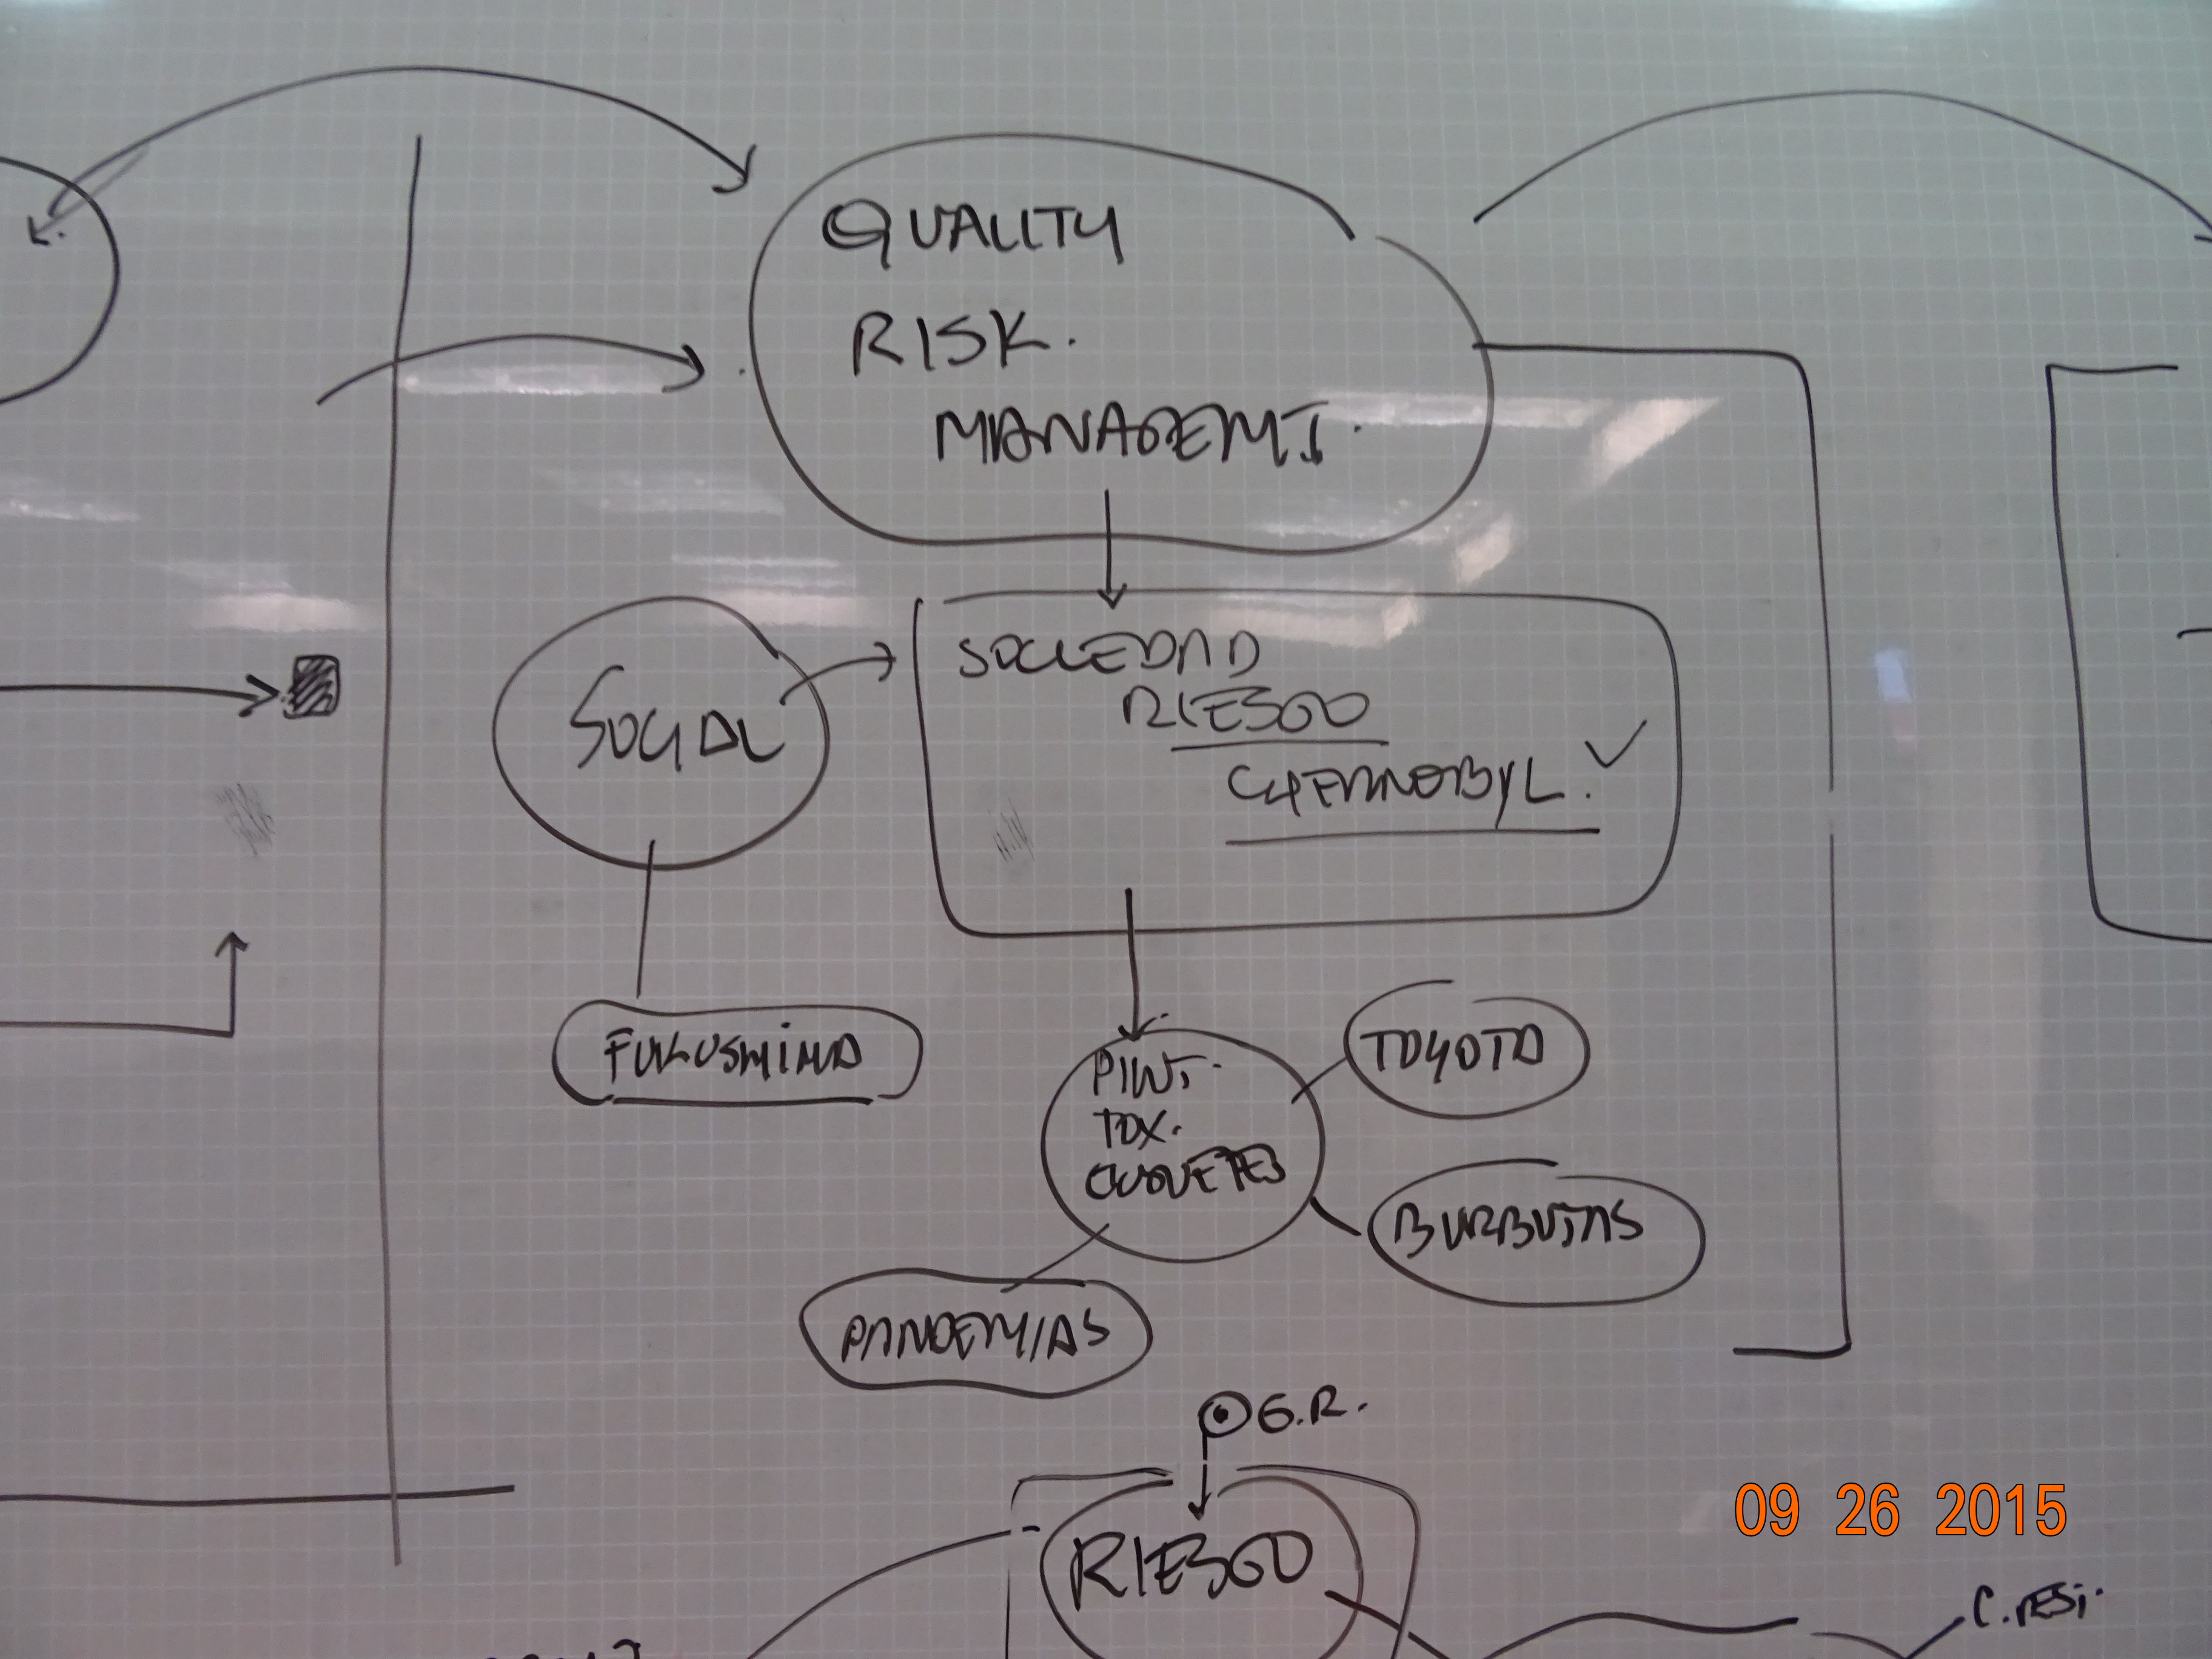 QUALITY
RISK.
MANAGEMT.
SOCIEDAD
RIESGO
CHERNOBYL.
SOCIAL
FUKUSHIMA
PINT.
TOX.
JUGUETES
TOYOTA
BURBUJAS
PANDEMIAS
G.R.
RIESGO
09 26 2015